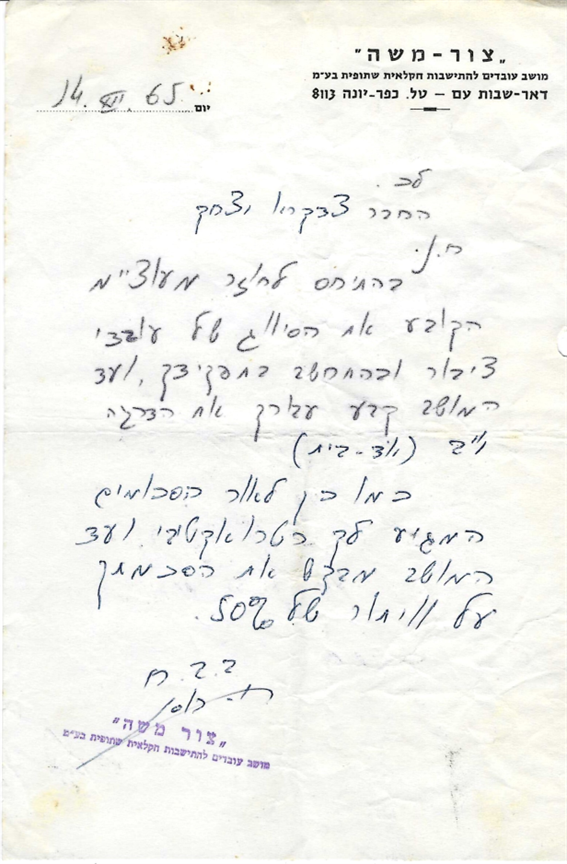 „צור-משה"
מושב עובדים להתישבות חקלאית שתופית בע״מ
דאר-שבות עם – טל. כפר-יונה 8113
יום 14. XII. 65
לכ.
החבר צדקהו יצחק
ח.נ.
בהתיחס לחוזר מעוצי״מ
הקובע את הסיווג של עובדי
ציבור ובהתחשב בתפקידך, ועד
המושב קבע עבורך את הדרגה
י״ב (אד-בית)
כמו כן לאור הסכומים
המגיע לך רטרואקטיבי ועד
המושב מבקש את הסכמתך
על ויתור של 50%.
ב.ב. ח
„צור משה"
מושב עובדים להתישבות חקלאית שתופית בע״מ